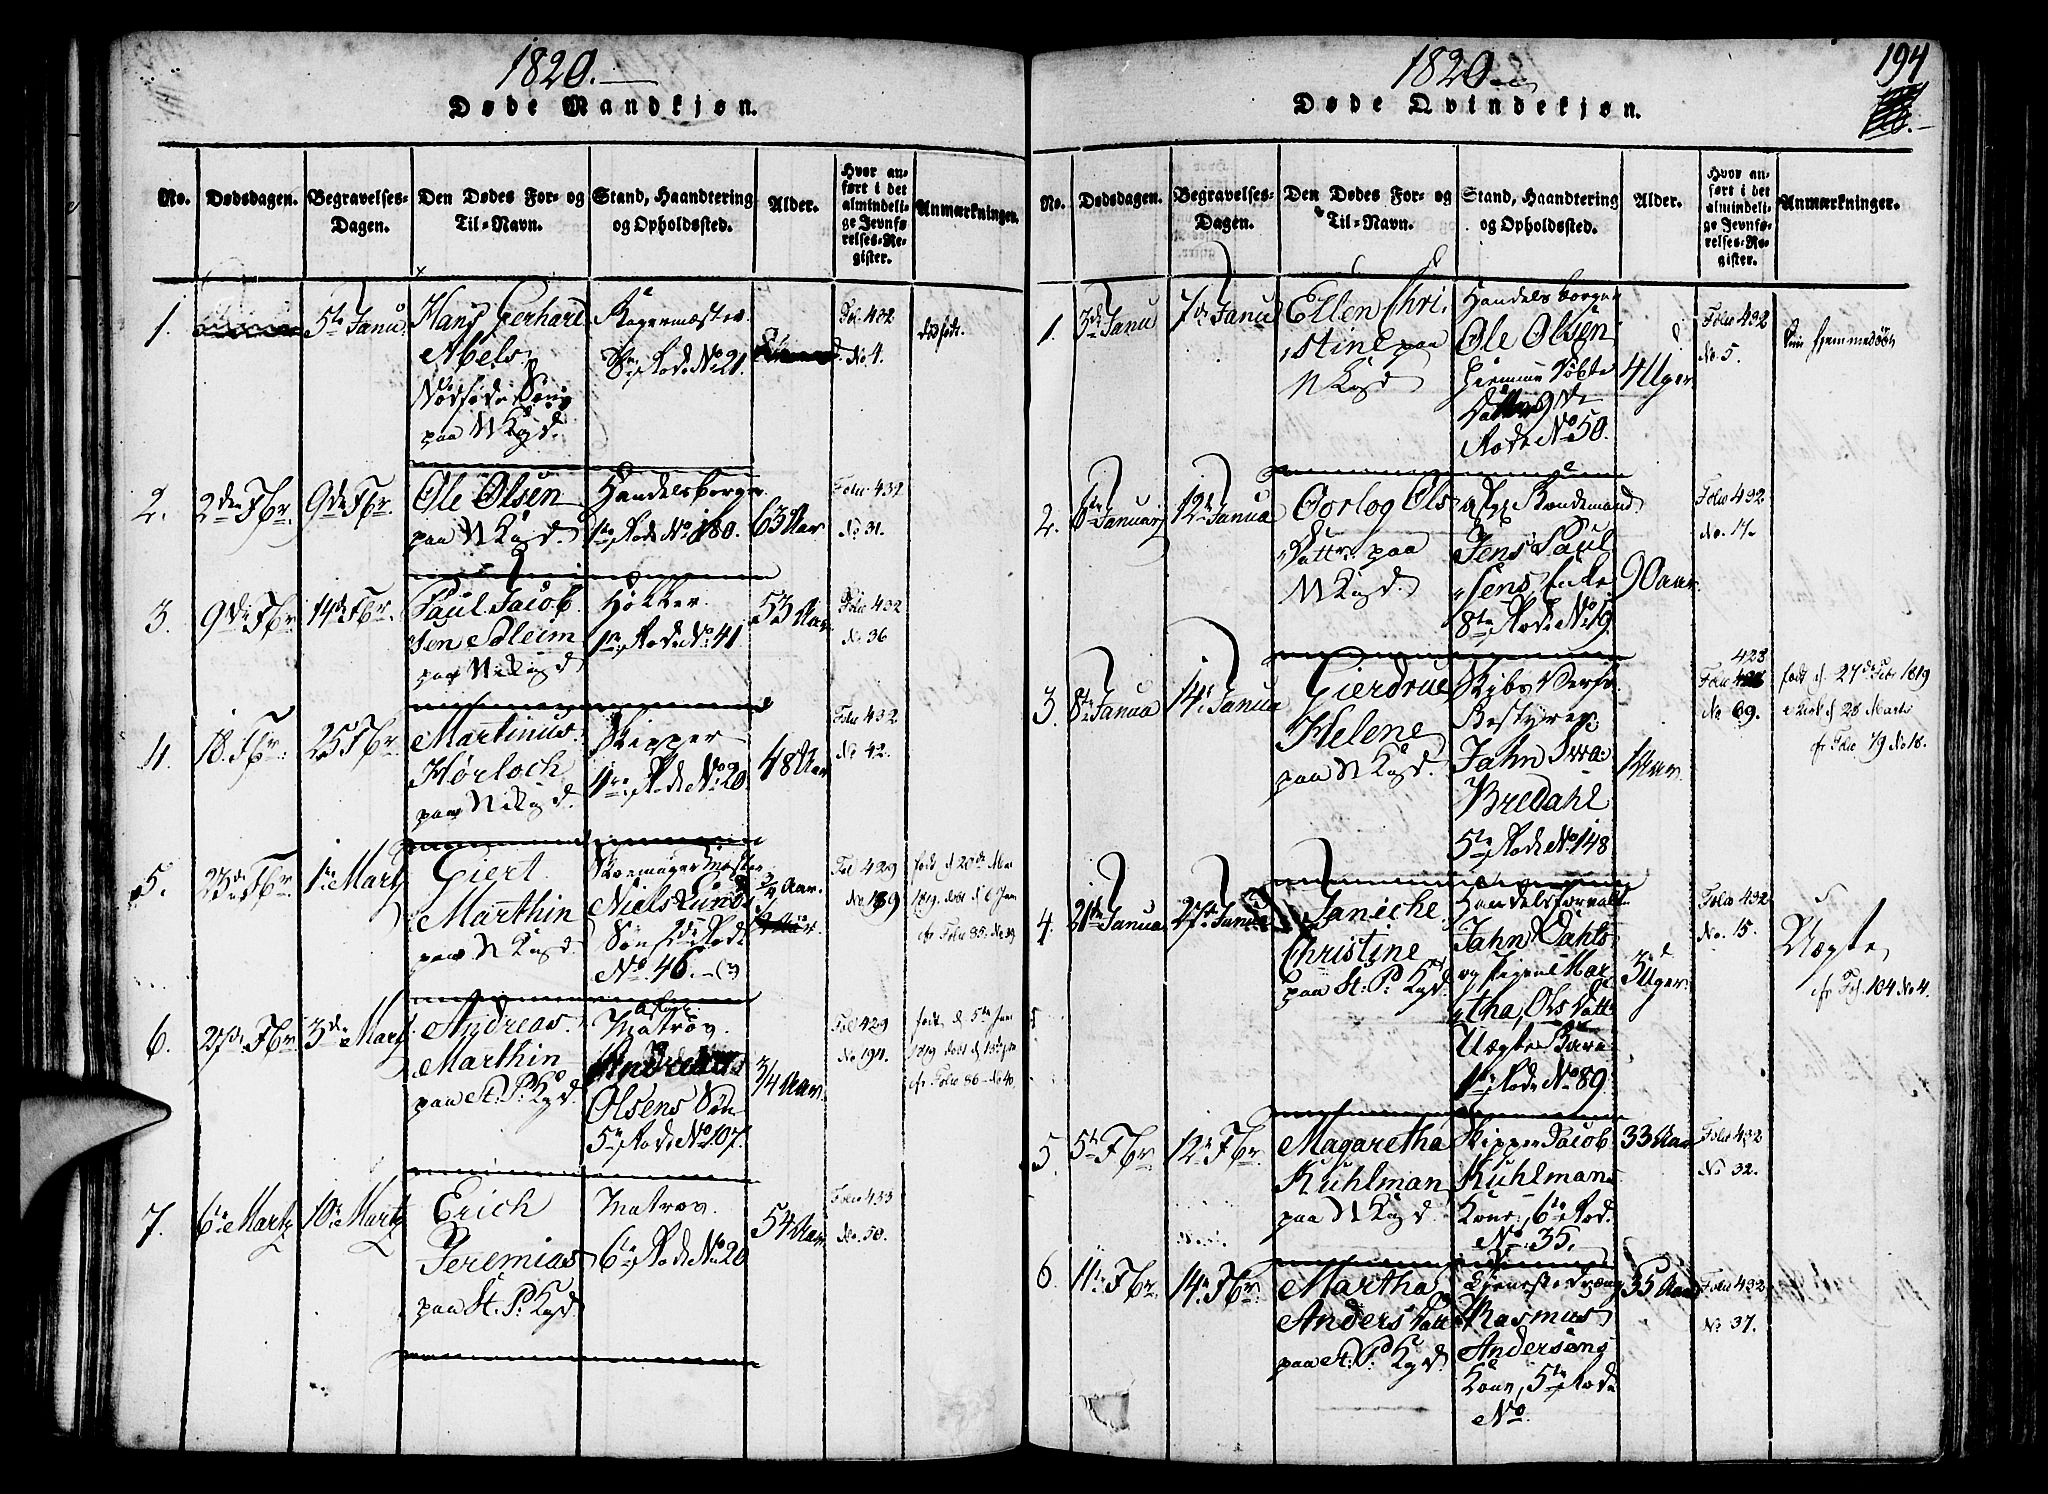 1820.
Døde Mandkjøn.
No.
Dødsdagen.
Begravelses-
Dagen.
Den Dødes For- og
Til-Navn.
Stand, Haandtering
og Opholdssted.
Alder.
Hvor an-
ført i det
almindeli-
ge Jevnfø-
relses-Re-
gister.
Anmærkninger.
1.
5te Janu.
Hans Gerhard
Abels
paa N Kgd.
Sn. Rode No 21.
Fol. 432
No 4.
dødfødt.
2.
2den Fbr.
9de Fbr.
Ole Olsen
paa N Kgd.
Handelsborger
1te Rode No 180.
63 Aar
Folio 432
No 31.
3.
9de Fbr.
14de Fbr.
Paul Jacob-
sen Soleim
paa N Kgd.
Høkker
1te Rode No 41
53 Aar
Folio 432
No 36
4.
18. Fbr.
25 Fbr.
Martinus
Hørloch
paa N Kgd.
Skipper
Rode No 20.
48 Aar
Folio 432
No 42.
5.
23de Fbr.
1te Martz
Giert
Marthin
paa N Kgd.
Skoemagermester
Niels Lunds
Søn 5te Rode
No. 46.
3/4 Aar.
Fol 429
No 189
født d. 20de Mai
1819
cfr Folio 85. No 29
6.
27de Fbr.
3de Martz
Andreas
Marthin
paa St. P. Kgd.
Matros
Olsens Søn
5te Rode No 107.
3/4 Aar
Fol 429
No 194.
født d. 5te Jun
1819
cfr Folio 86 No 40.
7.
6te Martz
10de Martz
Erich
Jeremias
paa St. P. Kgd.
Matros
6te Rode No 20
54 Aar
Folio 433
No. 50.
1820.
194
Døde Qvindekjøn.
No.
Dødsdagen.
Begravelses-
Dagen.
Den Dødes For- og
Til-Navn.
Stand, Haandtering
og Opholdssted.
Alder.
Hvor an-
ført i det
almindeli-
ge Jevnfø-
relses-Re-
gister.
Anmærkninger.
1.
3de Janu
7de Janu
Ellen Chri-
stine paa
N Kgd
Handelsborger
Ole Olsen
hiemme døbte
Datter 9de
Rode No 50.
4 Uger
Folio 432
No. 5.
kun hjemmedøbt
2.
6te Januarj
12te Janua
Oorlog Ols
Datter paa
N Kgd.
Bondemand
Jens Paul-
sens Enke
8te Rode No 19.
90 aar
Folio 432
No. 17.
3.
8te Janua
14de Janua
Gierdrue
Helene
paa N Kgd.
Skibs Verfts
Bestyrer
Jahn Irra
Bredahl
5te Rode No 148
1 Aar
423
Folio
No 69.
født d. 27de Febr 1819
i Kirk d 28 Marts
cfr Folio 79 No 18.
4.
21de Janua
27de Janua
Janiche
Christine
paa St: P: Kgd.
Handelsforvalt
Jahn Dahls
og Pigen Mar-
tha, Ols Datt
Uægte Barn
1te Rode No 89.
3 Uger
Folio 432
No. 15.
Uægte
cfr Fol. 104 No 4.
5.
5te Fbr.
12te Fbr.
Magaretha
Kuhlman
paa N Kgd.
Skipper Jacob
Kuhlmans
Kone, 6te Rod.
No. 35.
33 Aar
Folio 432
No 32.
6.
11te Fbr.
14de Fbr.
Martha
Anders Datt
paa St. P. Kgd.
Tjenestedræng
Rasmus
Andersens
Kone, 5te Rode
No.
35 Aar
Folio 432
No 37.